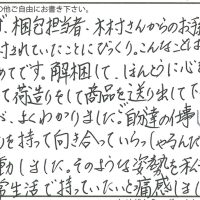 の他ご自由にお書き下さい。
ず、梱包担当者・木村さんからのお手
されていたことにびっくり。こんなことは
めてです。解梱して、ほんとうに心を
て荷造りをして商品を送り出して下
が、よくわかりました。ご自達の仕事に
りを持って向き合っていらっしゃるんだ
動しました。そのような姿勢を私も
常生活で持っていたいと痛感しまし